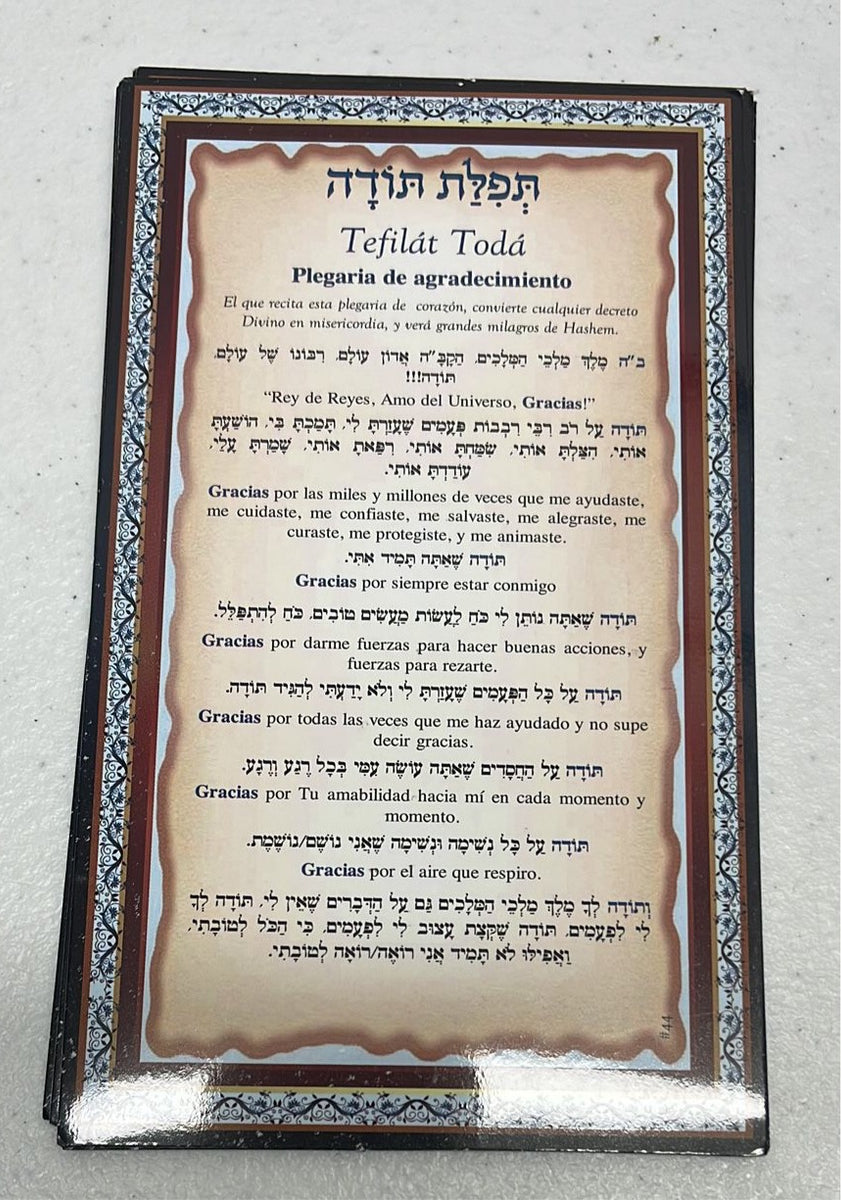 תְּפִלַּת תּוֹדָה
Tefilát Todá
Plegaria de agradecimiento
El que recita esta plegaria de corazón, convierte cualquier decreto
Divino en misericordia, y verá grandes milagros de Hashem.
ב"ה מֶלֶךְ מַלְכֵי הַמְּלָכִים, הַקָבָּ"ה אֲדוֹן עוֹלָם, רִבּוֹנוֹ שֶׁל עוֹלָם,
תּוֹדָה!!!
“Rey de Reyes, Amo del Universo, Gracias!”
תּוֹדָה עַל רֹב רִבֵּי רְבָבוֹת פְּעָמִים שֶׁעָזַרְתָּ לִי, תָּמַכְתָּ בִּי, הוֹשַׁעְתָּ
אוֹתִי, הִצַּלְתָּ אוֹתִי, שִׂמַּחְתָּ אוֹתִי, רִפֵּאתָ אוֹתִי, שָׁמַרְתָּ עָלַי,
עוֹדַדְתָּ אוֹתִי.
Gracias por las miles y millones de veces que me ayudaste,
me cuidaste, me confiaste, me salvaste, me alegraste, me
curaste, me protegiste, y me animaste.
תּוֹדָה שֶׁאַתָּה תָּמִיד אִתִּי.
Gracias por siempre estar conmigo
תּוֹדָה שֶׁאַתָּה נוֹתֵן לִי כֹּחַ לַעֲשׂוֹת מַעֲשִׂים טוֹבִים, כֹּחַ לְהִתְפַּלֵּל.
Gracias por darme fuerzas para hacer buenas acciones, y
fuerzas para rezarte.
תּוֹדָה עַל כָּל הַפְּעָמִים שֶׁעָזַרְתָּ לִי וְלֹא יָדַעְתִּי לְהַגִּיד תּוֹדָה.
Gracias por todas las veces que me haz ayudado y no supe
decir gracias.
תּוֹדָה עַל הַחֲסָדִים שֶׁאַתָּה עוֹשֶׂה עִמִּי בְּכָל רֶגַע וְרֶגַע.
Gracias por Tu amabilidad hacia mí en cada momento y
momento.
תּוֹדָה עַל כָּל נְשִׁימָה וּנְשִׁימָה שֶׁאֲנִי נוֹשֵׁם/נוֹשֶׁמֶת.
Gracias por el aire que respiro.
וְתוֹדָה לְךָ מֶלֶךְ מַלְכֵי הַמְּלָכִים גַּם עַל הַדְּבָרִים שֶׁאֵין לִי, תּוֹדָה לְךָ
לִי לִפְעָמִים, תּוֹדָה שֶׁקְּצָת עָצוּב לִי לִפְעָמִים, כִּי הַכֹּל לְטוֹבָתִי,
וַאֲפִילוּ לֹא תָּמִיד אֲנִי רוֹאֶה/רוֹאָה לְטוֹבָתִי.
#44